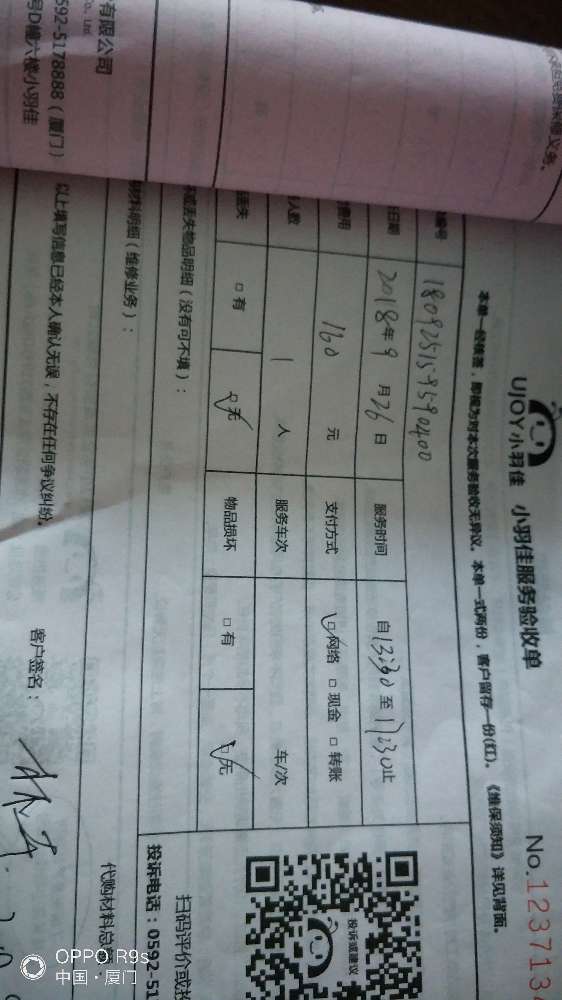 UJOY小羽佳 小羽佳服务验收单
No.123713
本单一经核签，即视为对本次服务验收无异议。本单一式两份，客户留存一份(红)。《维保须知》详见背面。
编号 180925159590400
日期 2018年9月26日 服务时间 自13:30至17:30止
费用 160元 支付方式 □网络 □现金 □转账
人数 1人 服务车次 车/次
丢失 □有 □无 物品损坏 □有 □无
或丢失物品明细（没有可不填）：
材料明细（维修业务）：
代购材料总
以上填写信息已经本人确认无误，不存在任何争议纠纷。
客户签名：
投诉或建议
扫码评价或投
投诉电话：0592-51
有限公司
Co., Ltd.
592-5178888（厦门）
号D幢六楼小羽佳
OPPO R9s
中国·厦门